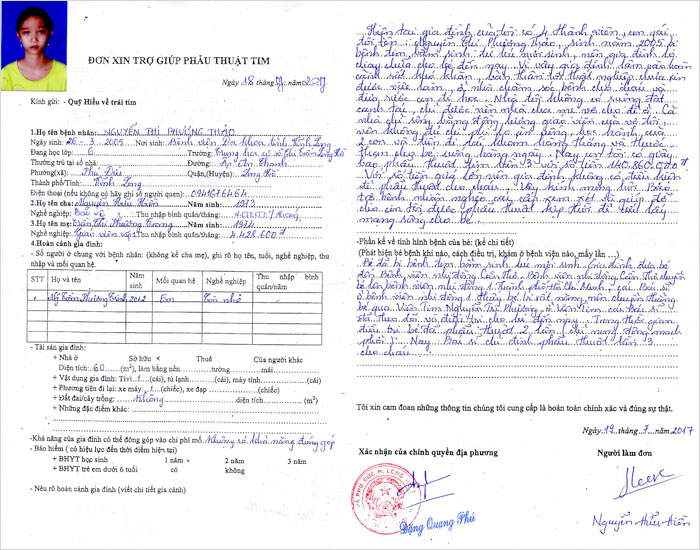 ĐƠN XIN TRỢ GIÚP PHẪU THUẬT TIM
Ngày 18 tháng năm 2017
Kính gửi: - Quỹ Hiểu về trái tim
1.Họ tên bệnh nhân: NGUYỄN THỊ PHƯƠNG THẢO
Ngày sinh: 26 - 3 - 2005 Nơi sinh: Bệnh viện Đa khoa tỉnh Vĩnh Long
Đang học lớp: 6 Trường: Trung học cơ sở Thị Trấn Long Hồ
Thường trú tại số nhà: Ấp An Thành
Phường(xã): Phú Đức Quận,(Huyện): Long Hồ
Thành phố/Tỉnh: Vĩnh Long
Điện thoại (nếu không có hãy ghi số người quen): 0941676464
2.Họ tên cha: Nguyễn Hữu Hiền Năm sinh: 1973
Nghề nghiệp: Bảo vệ Thu nhập bình quân/tháng:
3.Họ tên mẹ: Trần Thị Phương Trang Năm sinh: 1974
Nghề nghiệp: Giáo viên cấp 1 Thu nhập bình quân/tháng: 4.428.600đ
4.Hoàn cảnh gia đình:
- Số người ở chung với bệnh nhân: (không kể cha mẹ), ghi rõ họ tên, tuổi, nghề nghiệp, thu nhập và mối quan hệ.
STT Họ và tên Năm sinh Mối quan hệ Nghề nghiệp Thu nhập bình quân/năm
Trần Phương Trinh 2012 Em Còn nhỏ
- Tài sản gia đình:
+ Nhà ở Sở hữu x Thuê Của người khác
Diện tích: 60 (m²), làm bằng nền tường mái
+ Vật dụng gia đình: Tivi: 1 (cái), tủ lạnh (cái), máy tính (cái)
+ Phương tiện đi lại: xe máy 1 (chiếc), xe đạp (chiếc)
+ Đất đai/cây trồng: Không diện tích (m²)
+ Những đặc điểm khác:
-Khả năng của gia đình có thể đóng góp vào chi phí mổ: Không có khả năng đóng góp
- Bảo hiểm ( có hiệu lực đến thời điểm hiện tại)
+ BHYT học sinh 1 năm x 2 năm 3 năm
+ BHYT trẻ em dưới 6 tuổi có không
- Nêu rõ hoàn cảnh gia đình (viết chi tiết gia cảnh)
Hiện tại gia đình của tôi có 4 thành viên, con gái
tôi tên: Nguyễn Thị Phương Thảo, sinh năm 2005 bị
bệnh tim bẩm sinh từ lúc mới sinh, nên gia đình lo
chạy chữa cho bé đến nay. Vì vậy gia đình lâm vào hoàn
cảnh rất khó khăn, bản thân tôi thất nghiệp chưa xin
được việc làm, ở nhà chăm sóc bệnh cháu và
đưa rước con đi học. Nhà tôi không có ruộng đất
canh tác, chỉ được nền nhà cha mẹ vợ cho để ở. Cả
nhà chỉ sống bằng đồng lương giáo viên của vợ tôi,
nên không đủ chi phí lo ăn uống, học hành của
2 con và tiền đi tái khám hàng tháng và thuốc
Nay con tôi có giấy
báo phẫu thuật tim lần 3 với số tiền 110.860.000đ
Với số tiền quá lớn nên gia đình không có điều kiện
để phẫu thuật cho cháu. Vậy kính mong hội Bảo
trợ bệnh nhân nghèo các cấp xem xét và giúp đỡ
cho con tôi được phẫu thuật kịp thời để có cơ hội
may mắn sống cho bé.
-Phần kể về tình hình bệnh của bé: (kể chi tiết)
(Phát hiện bệnh khi nào, cách điều trị, khám ở bệnh viện nào, mấy lần ...)
Bé đã bị bệnh tim bẩm sinh lúc mới sinh. Gia đình đưa bé
đến Bệnh viện nhi đồng Cần Thơ. Bệnh viện nhi đồng Cần Thơ chuyển
bé lên bệnh viện nhi đồng 1 Thành phố Hồ Chí Minh. Các Bác sĩ
ở bệnh viện nhi đồng 1 thấy bé bị rất nặng nên chuyển thẳng
bé qua Viện Tim Nguyễn Tri Phương. Ở Viện Tim các bác sĩ
đã theo dõi và điều trị cho bé đến nay. Trong thời gian
điều trị bé đã phẫu thuật 2 lần
Nay Bác sĩ chỉ định phẫu thuật lần 3
cho cháu.
Tôi xin cam đoan những thông tin chúng tôi cung cấp là hoàn toàn chính xác và đúng sự thật.
Ngày 19 tháng 7 năm 2017
Xác nhận của chính quyền địa phương Người làm đơn
Đặng Quang Phú
Nguyễn Hữu Hiền